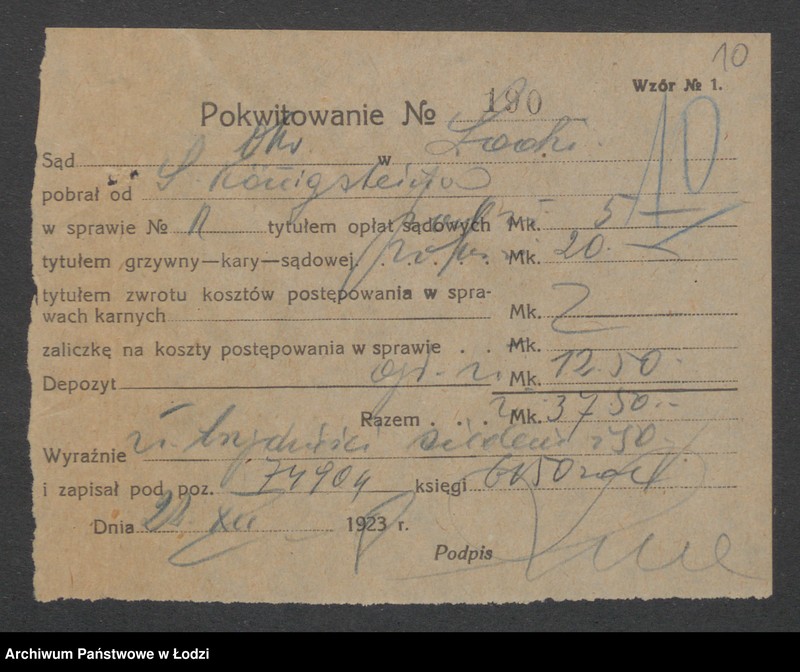 10
Wzór № 1.
Pokwitowanie № 190
10
Sąd Okr. w Łodzi.
pobrał od S. Königsteina
w sprawie № tytułem opłat sądowych Mk. 5
tytułem grzywny—kary—sądowej. . . . . . Mk. 20.—
tytułem zwrotu kosztów postępowania w spra-
wach karnych Mk.
zaliczkę na koszty postępowania w sprawie . . Mk.
Depozyt Mk. 12.50.
Razem . . . Mk. 37.50.—
Wyraźnie trzydzieści siedem i 50
i zapisał pod poz. 74904 księgi
Dnia XII 1923 r.
Podpis
Archiwum Państwowe w Łodzi